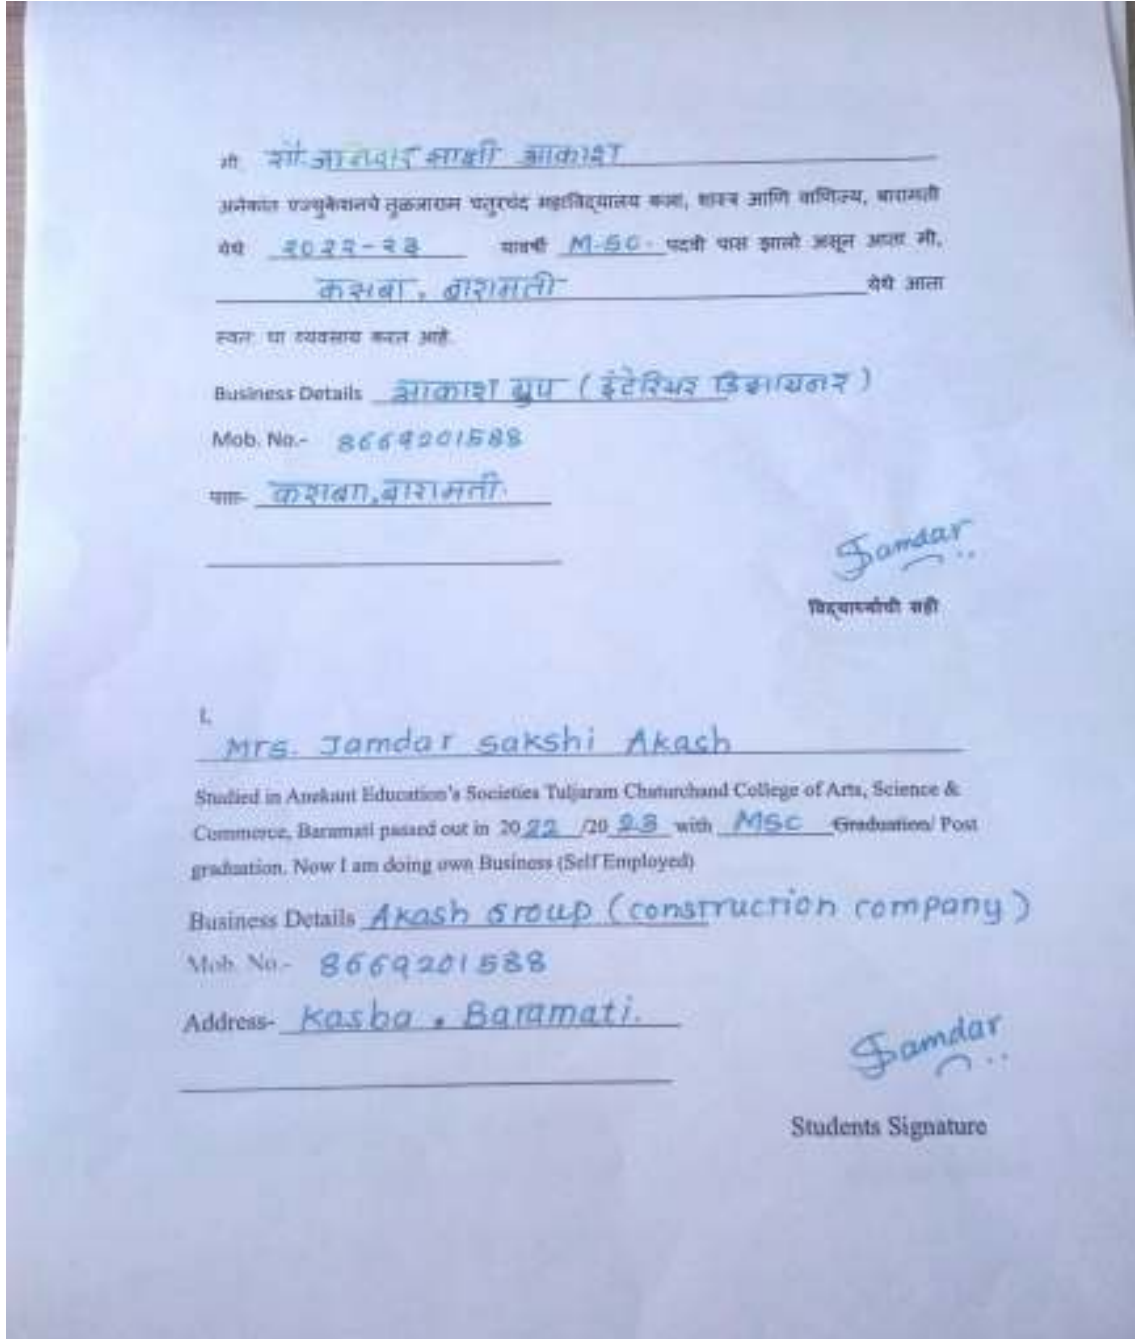 मी, सौ. जामदार साक्षी आकाश
अनेकांत एज्युकेशनचे तुळजाराम चतुरचंद महाविद्यालय कला, शास्त्र आणि वाणिज्य, बारामती
येथे २०२२-२३ यावर्षी M.SC. पदवी पास झालो असून आता मी,
कसबा, बारामती येथे आता
स्वतः चा व्यवसाय करत आहे.
Business Details आकाश ग्रुप (इंटेरियर डिझायनर)
Mob. No.- 8669201588
पत्ता- कसबा, बारामती.
Jamdar
विद्यार्थ्याची सही
I,
Mrs. Jamdar Sakshi Akash
Studied in Anekant Education's Societies Tuljaram Chaturchand College of Arts, Science &
Commerce, Baramati passed out in 2022 /2023 with MSC Graduation/ Post
graduation. Now I am doing own Business (Self Employed)
Business Details Akash Group (construction company)
Mob. No.- 8669201588
Address- Kasba, Baramati.
Jamdar
Students Signature